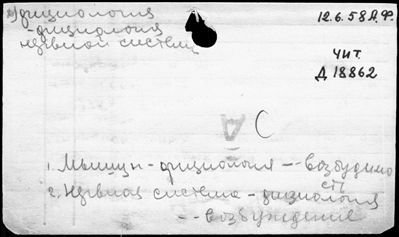 Физиология
12.6.58 А.Ф.
-физиология
нервной систем
Чит.
Д 18862
C
1. Мышцы - физиология -- возбудимо
сть
2. Нервная система - физиология
-- возбуждение